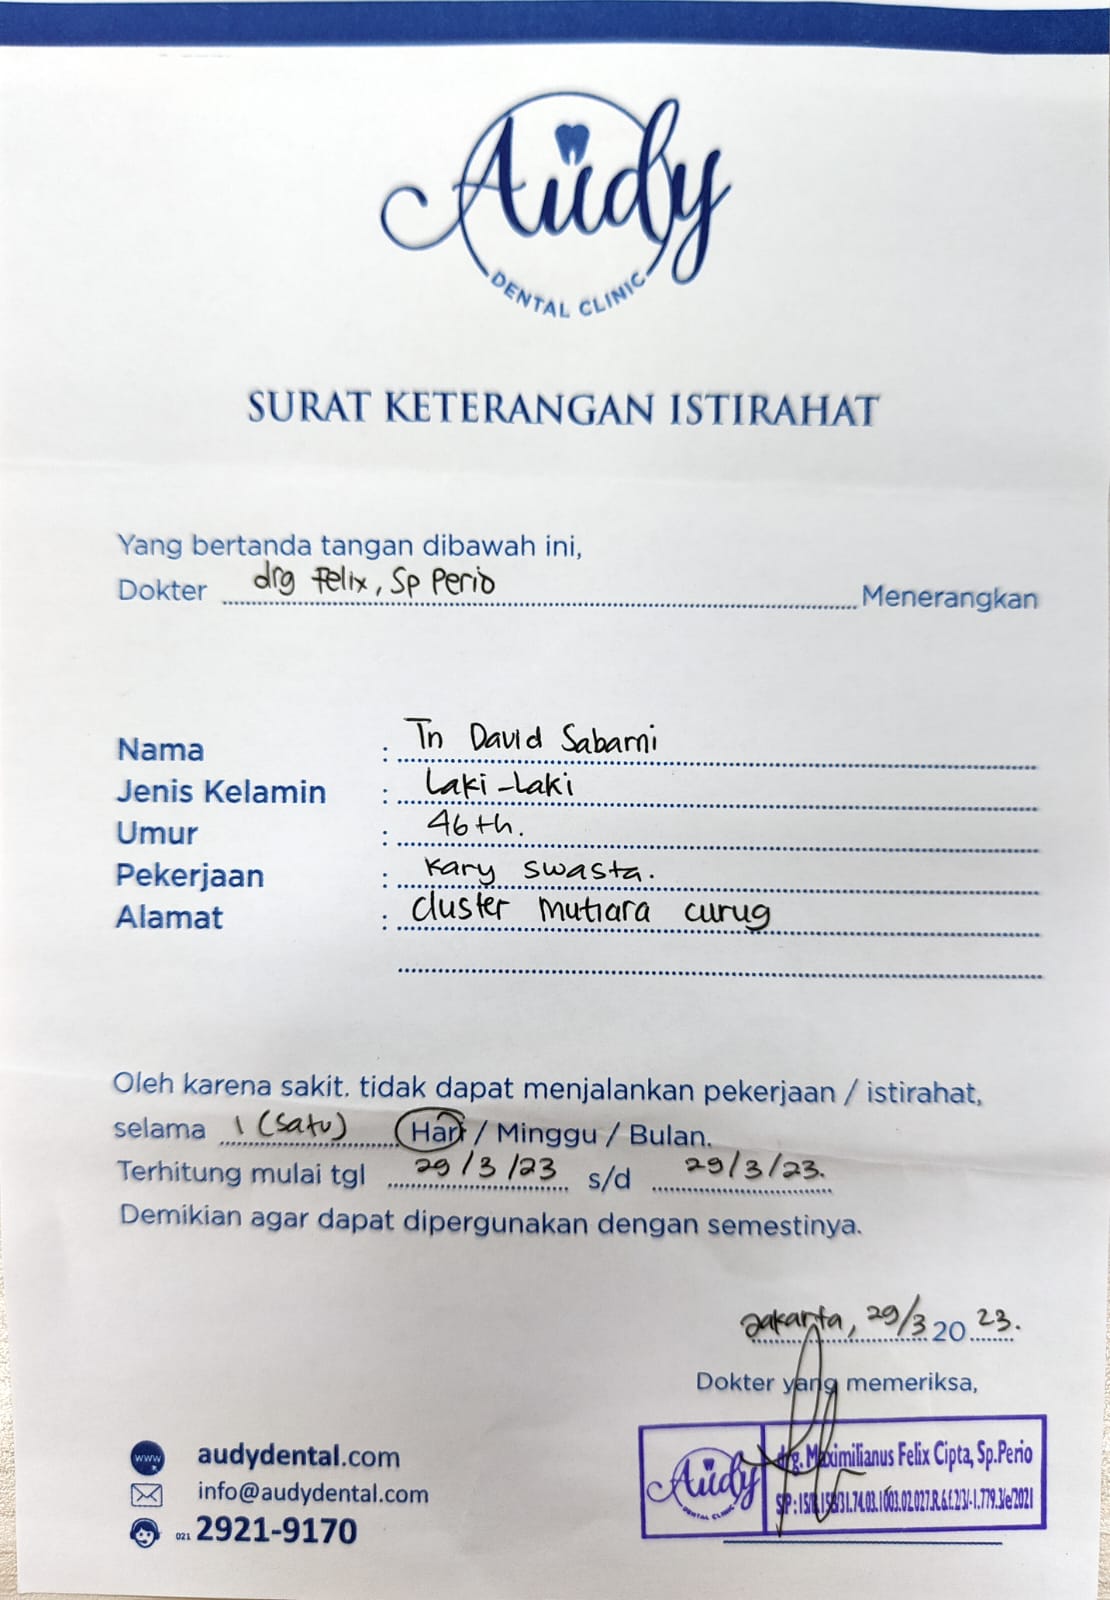 Audy
DENTAL CLINIC
SURAT KETERANGAN ISTIRAHAT
Yang bertanda tangan dibawah ini,
Dokter drg Felix, Sp Perio Menerangkan
Nama : Tn David Sabarni
Jenis Kelamin : Laki-Laki
Umur : 46th.
Pekerjaan : Kary swasta.
Alamat : cluster mutiara curug
Oleh karena sakit. tidak dapat menjalankan pekerjaan / istirahat,
selama 1 (satu) Hari / Minggu / Bulan.
Terhitung mulai tgl 29/3/23 s/d 29/3/23.
Demikian agar dapat dipergunakan dengan semestinya.
Jakarta, 29/3 20 23.
Dokter yang memeriksa,
Audy
DENTAL CLINIC
drg. Maximilianus Felix Cipta, Sp.Perio
www audydental.com
info@audydental.com
021 2921-9170